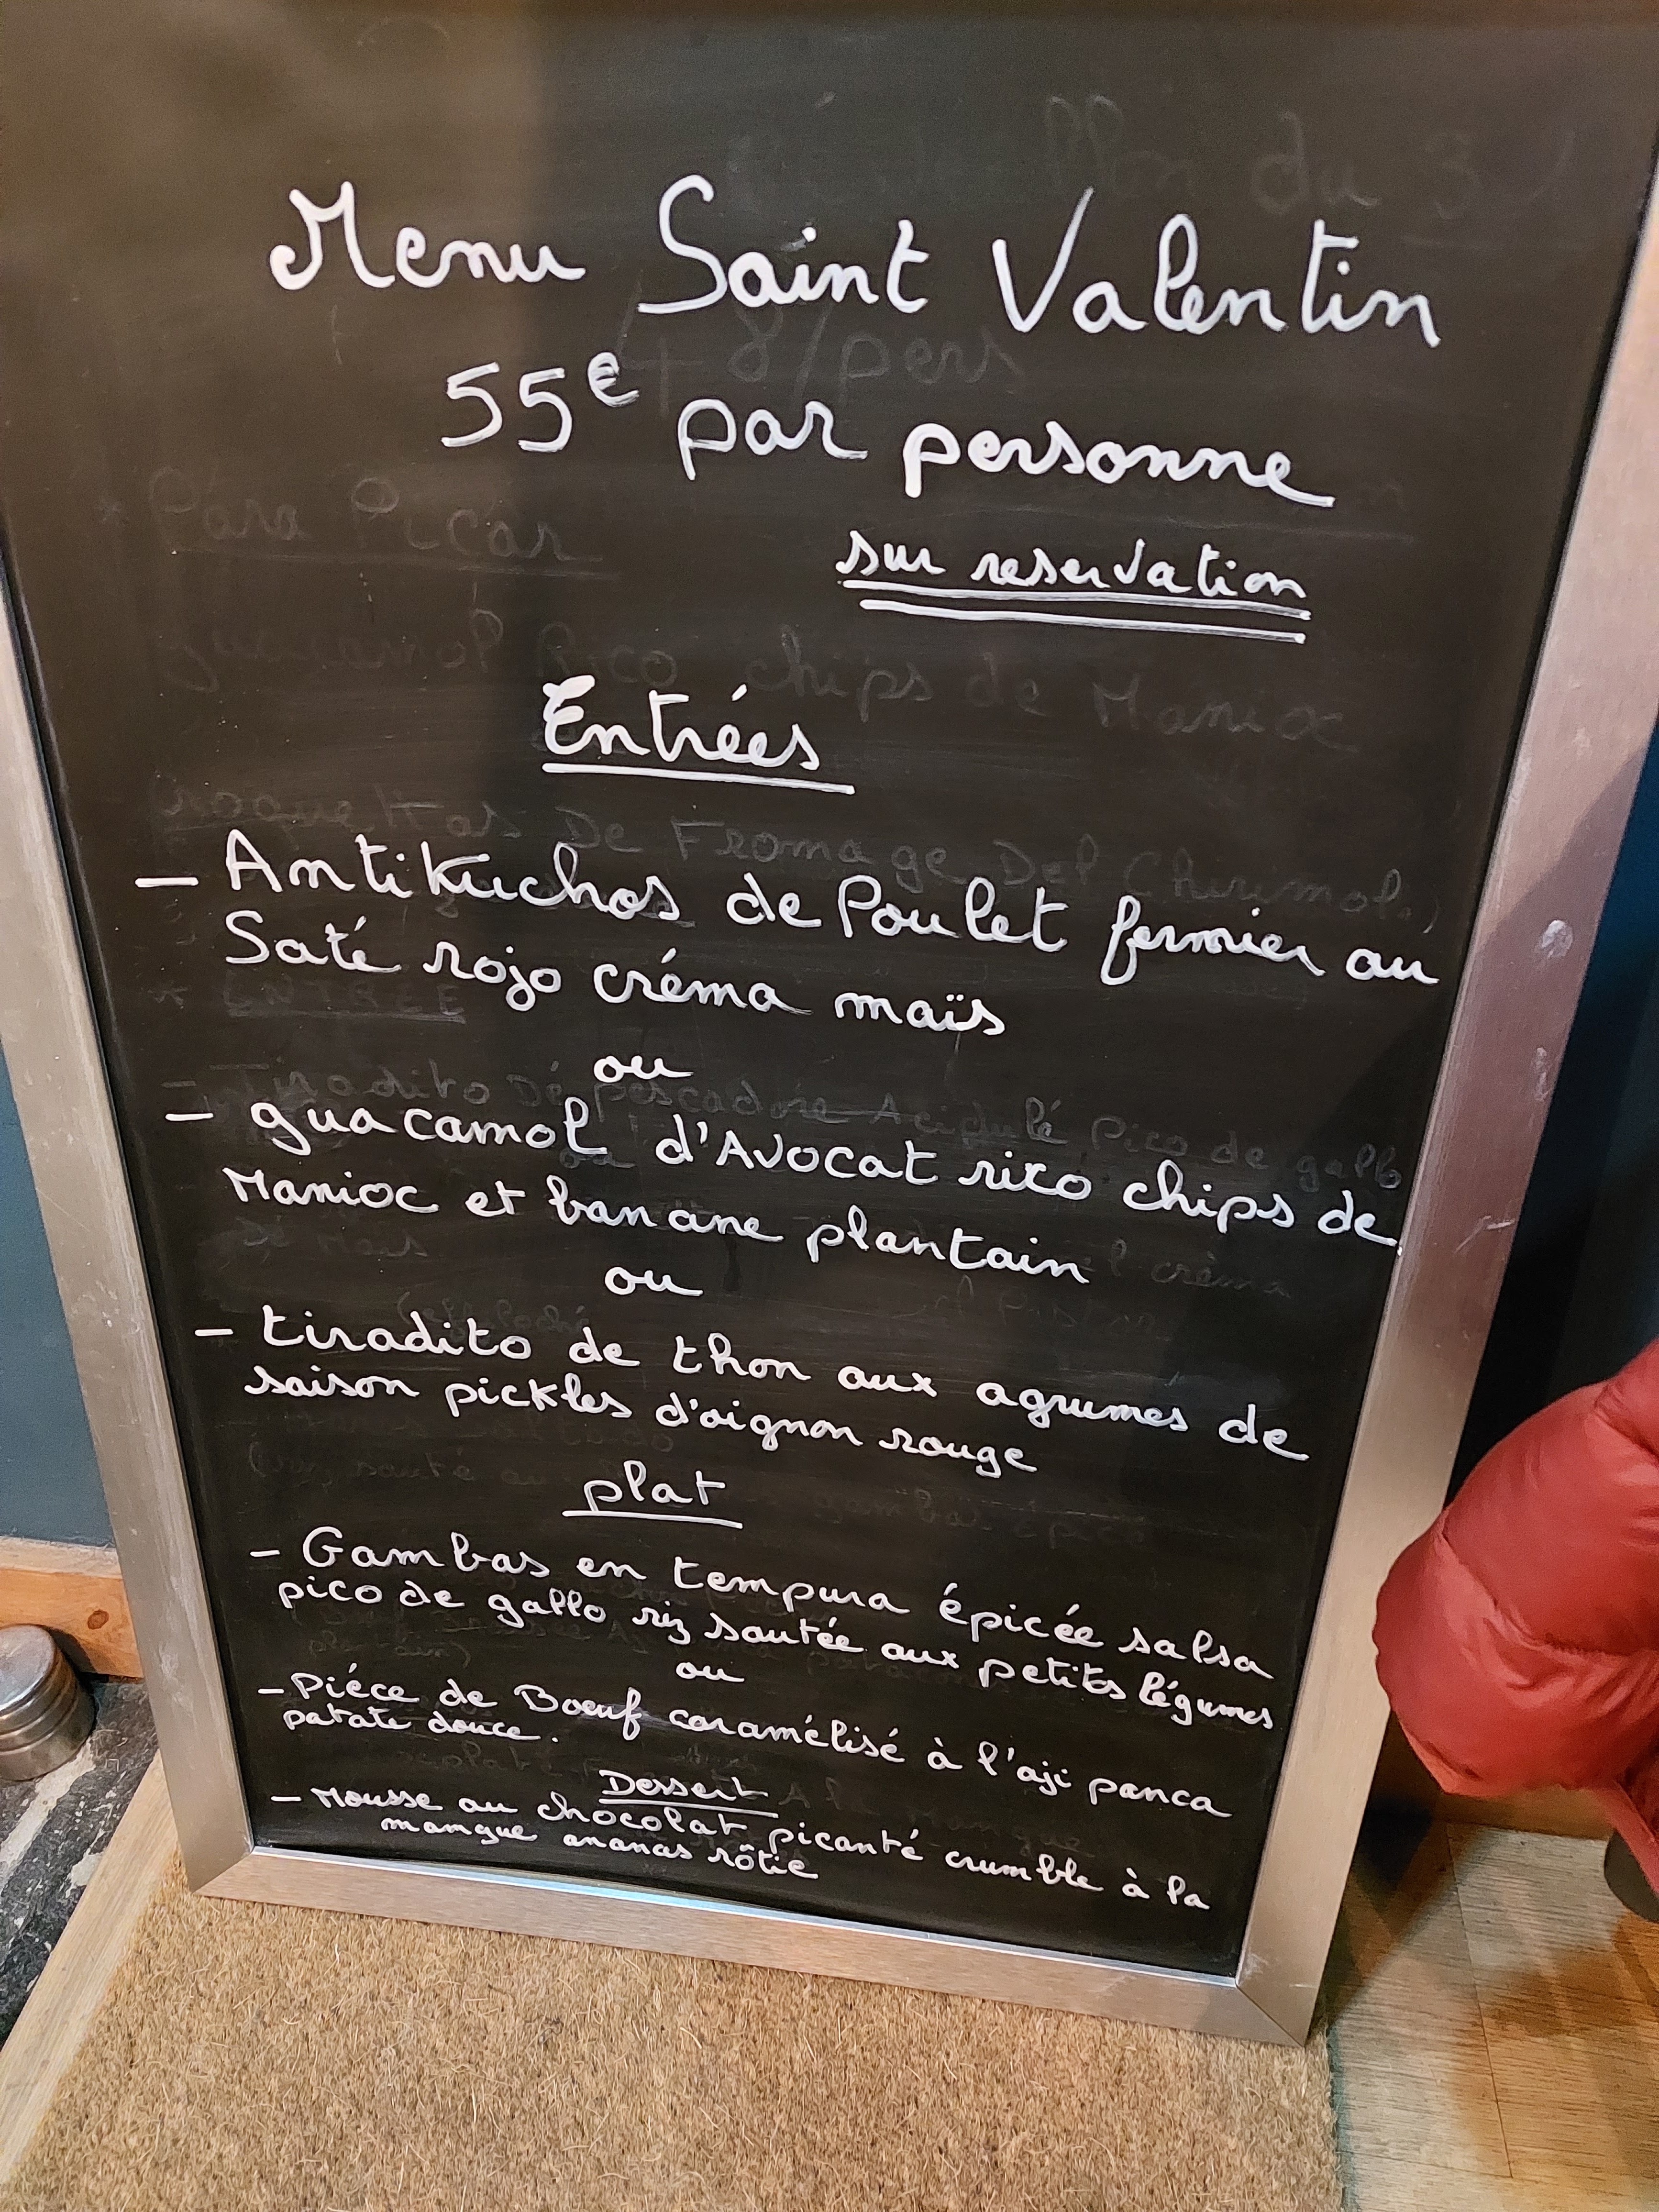 Menu Saint Valentin
55€ par personne
sur reservation
Entrées
- Antikuchos de Poulet fermier au
Saté rojo créma maïs
ou
- guacamol d'Avocat rico chips de
Manioc et banane plantain
ou
- tiradito de thon aux agrumes de
saison pickles d'oignon rouge
plat
- Gambas en tempura épicée salsa
pico de gallo riz sautée aux petits légumes
ou
- Piéce de Boeuf caramélisé à l'aji panca
patate douce.
Dessert
- Mousse au chocolat picanté crumble à la
mangue ananas rôtie